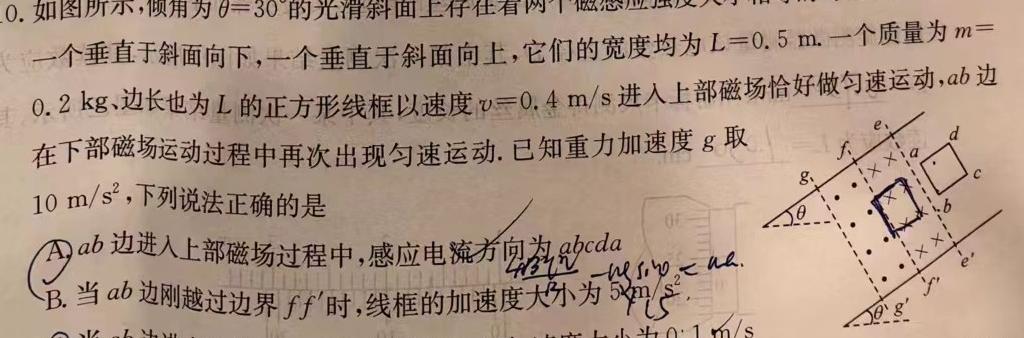 0. 如图所示,倾角为θ=30°的光滑斜面上存在着两个磁感应强度大小相等的
一个垂直于斜面向下,一个垂直于斜面向上,它们的宽度均为L=0.5 m. 一个质量为m=
0.2 kg、边长也为L的正方形线框以速度v=0.4 m/s进入上部磁场恰好做匀速运动,ab边
在下部磁场运动过程中再次出现匀速运动. 已知重力加速度g取
10 m/s²,下列说法正确的是
A. ab边进入上部磁场过程中,感应电流方向为abcda
B. 当ab边刚越过边界ff′时,线框的加速度大小为5 m/s²
0.1 m/s
e
d
f
a
c
g
b
θ
e′
f′
θ
g′